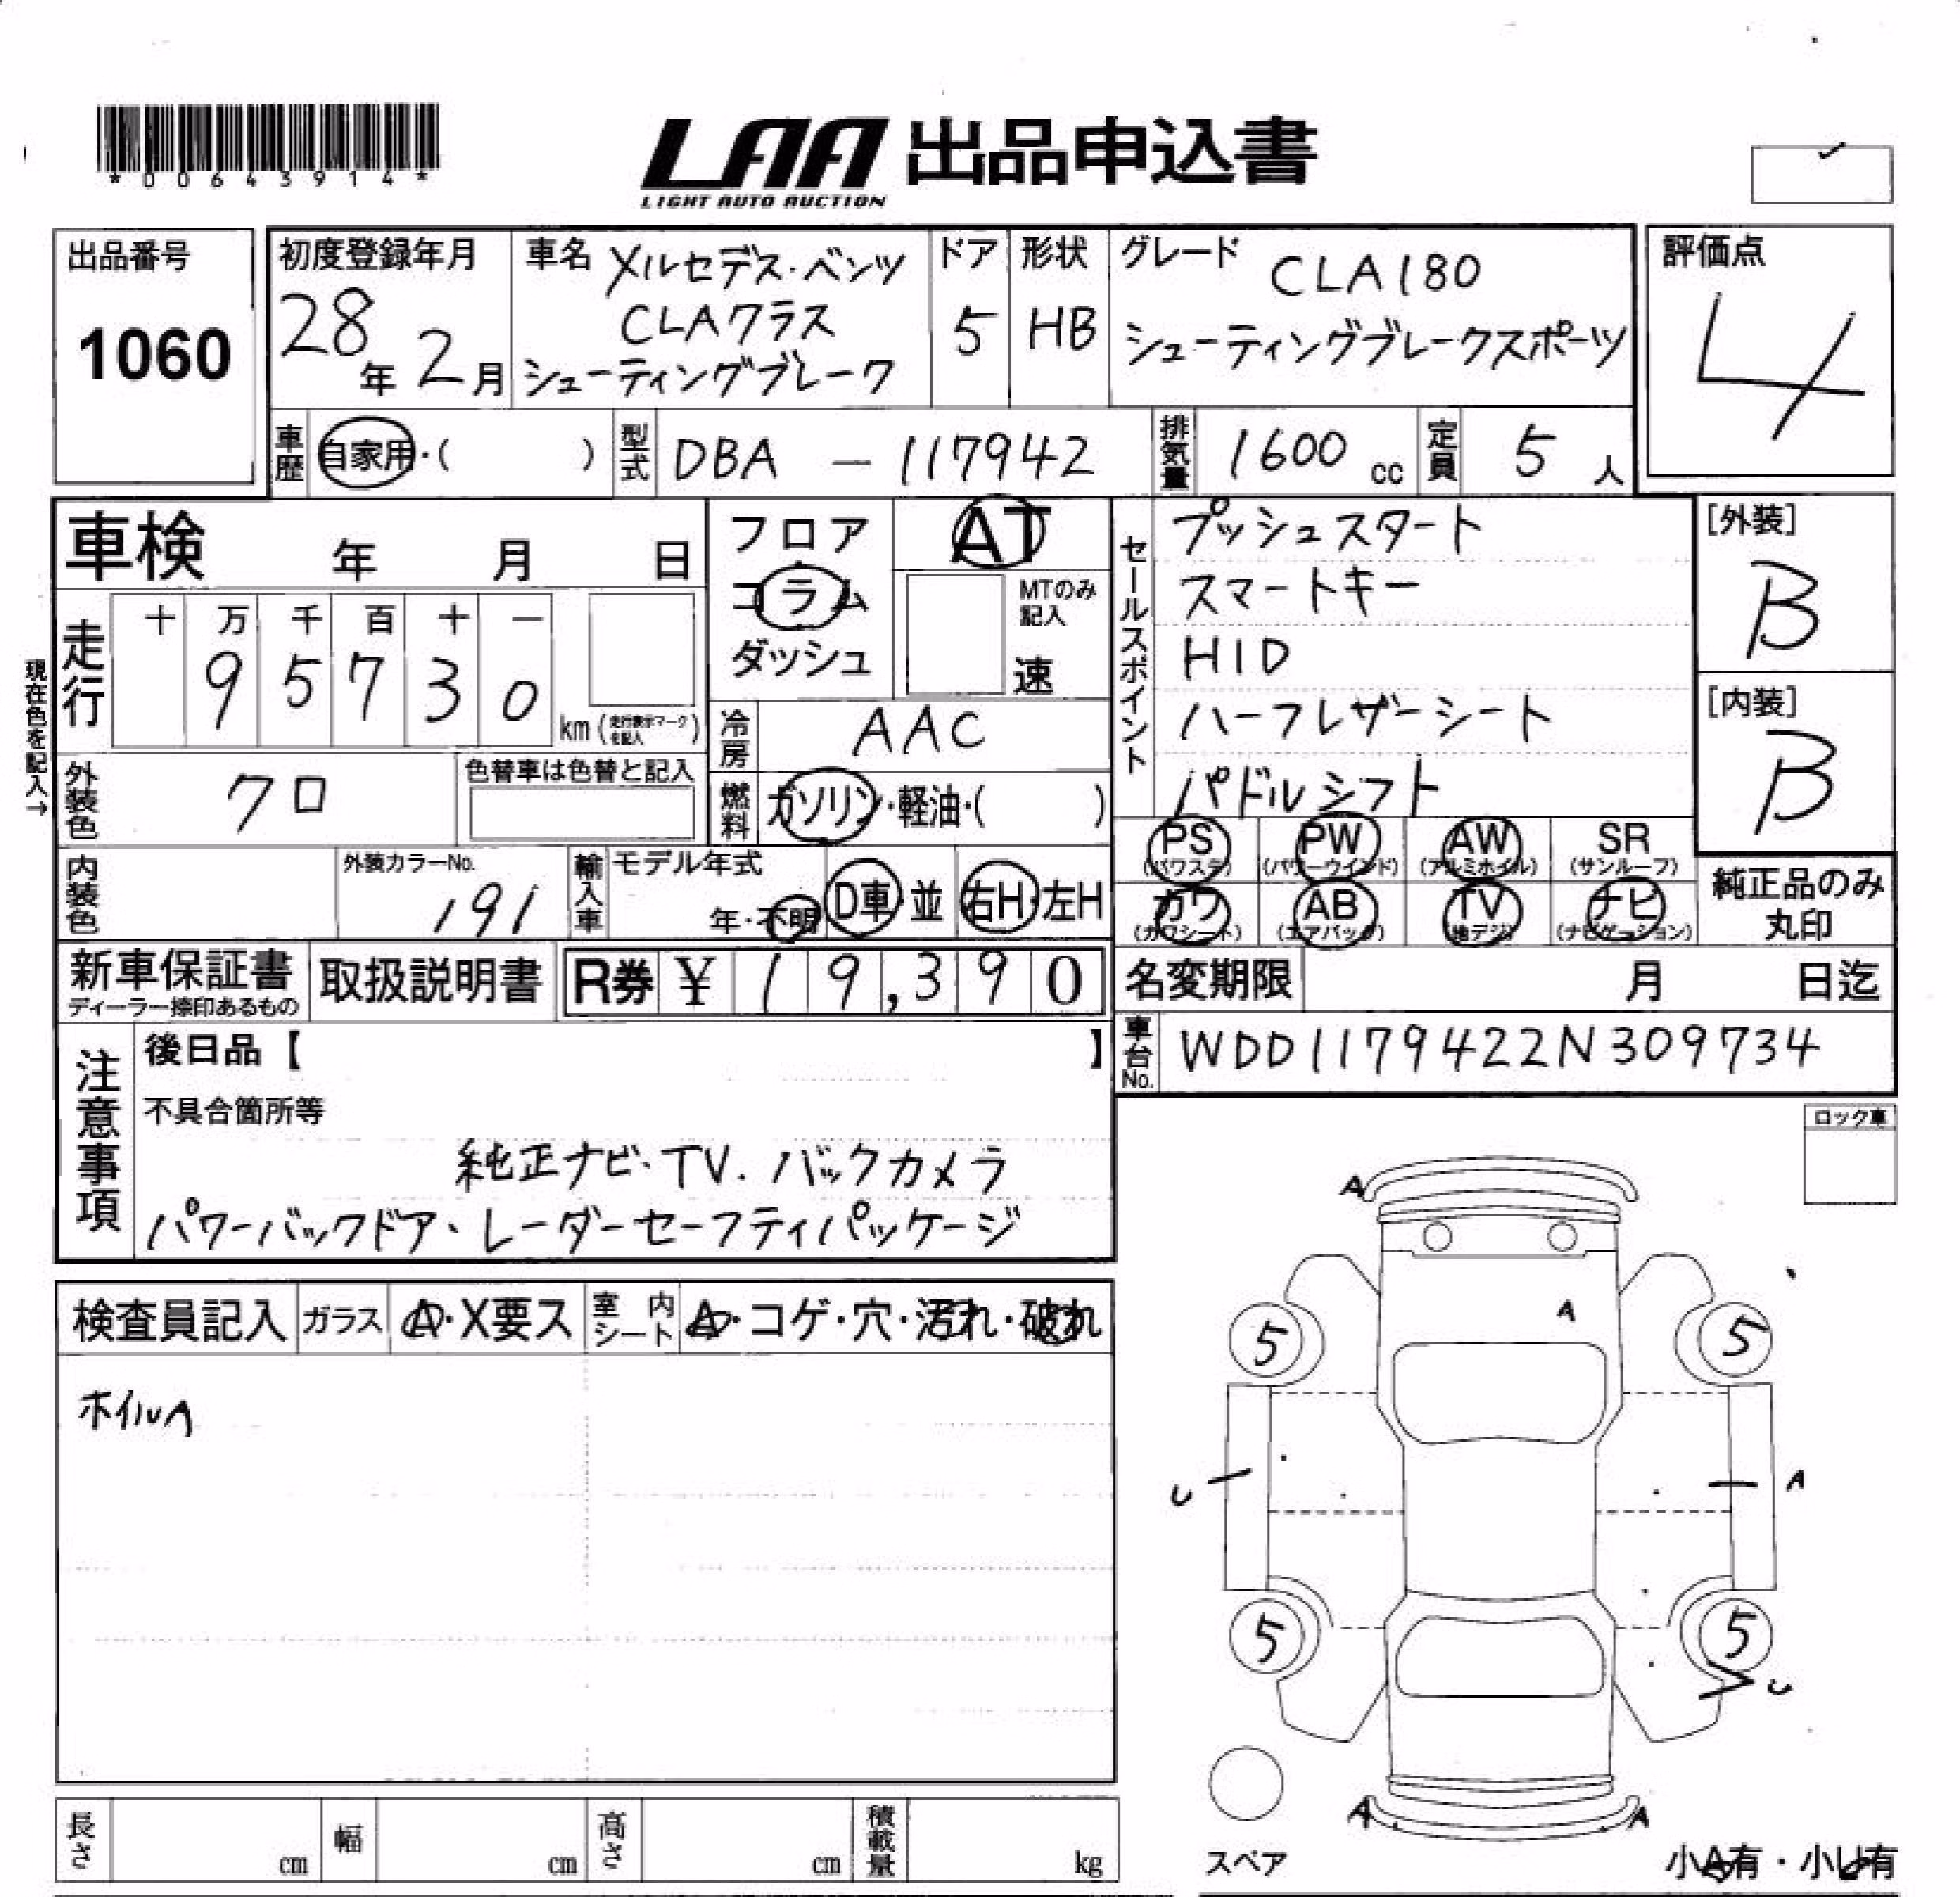 *00643914*
LAA 出品申込書
LIGHT AUTO AUCTION
出品番号
1060
初度登録年月
28年 2月
車名 メルセデス・ベンツ
CLAクラス
シューティングブレーク
ドア
5
形状
HB
グレード CLA180
シューティングブレークスポーツ
評価点
4
車歴 自家用・( )
型式 DBA — 117942
排気量 1600 cc
定員 5 人
車検 年 月 日
フロア
コラム
ダッシュ
AT
MTのみ記入
速
走行
十 万 千 百 十 一
9 5 7 3 0
km (走行表示マークを記入)
現在色を記入→
冷房 AAC
外装色 クロ
色替車は色替と記入
燃料 ガソリン・軽油・( )
内装色
外装カラーNo.
191
輸入車 モデル年式
年・不明
D車・並
右H・左H
セールスポイント
プッシュスタート
スマートキー
HID
ハーフレザーシート
パドルシフト
[外装]
B
[内装]
B
PS (パワステ)
PW (パワーウインド)
AW (アルミホイル)
SR (サンルーフ)
カワ (カワシート)
AB (エアバック)
TV (地デジ)
ナビ (ナビゲーション)
純正品のみ
丸印
新車保証書
ディーラー捺印あるもの
取扱説明書
R券 ¥ 19,390
名変期限 月 日迄
車台No. WDD1179422N309734
注意事項
後日品【 】
不具合箇所等
純正ナビ・TV. バックカメラ
パワーバックドア、レーダーセーフティパッケージ
ロック車
検査員記入 ガラス A・X要ス 室内シート A・コゲ・穴・汚れ・破れ
ホイルA
A
A
5
5
U
A
5
5
U
A
A
スペア
小A有・小U有
長さ cm
幅 cm
高さ cm
積載量 kg